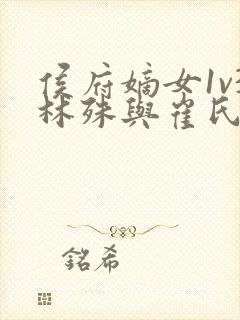 侯府嫡女1v
林殊與崔氏
銘希